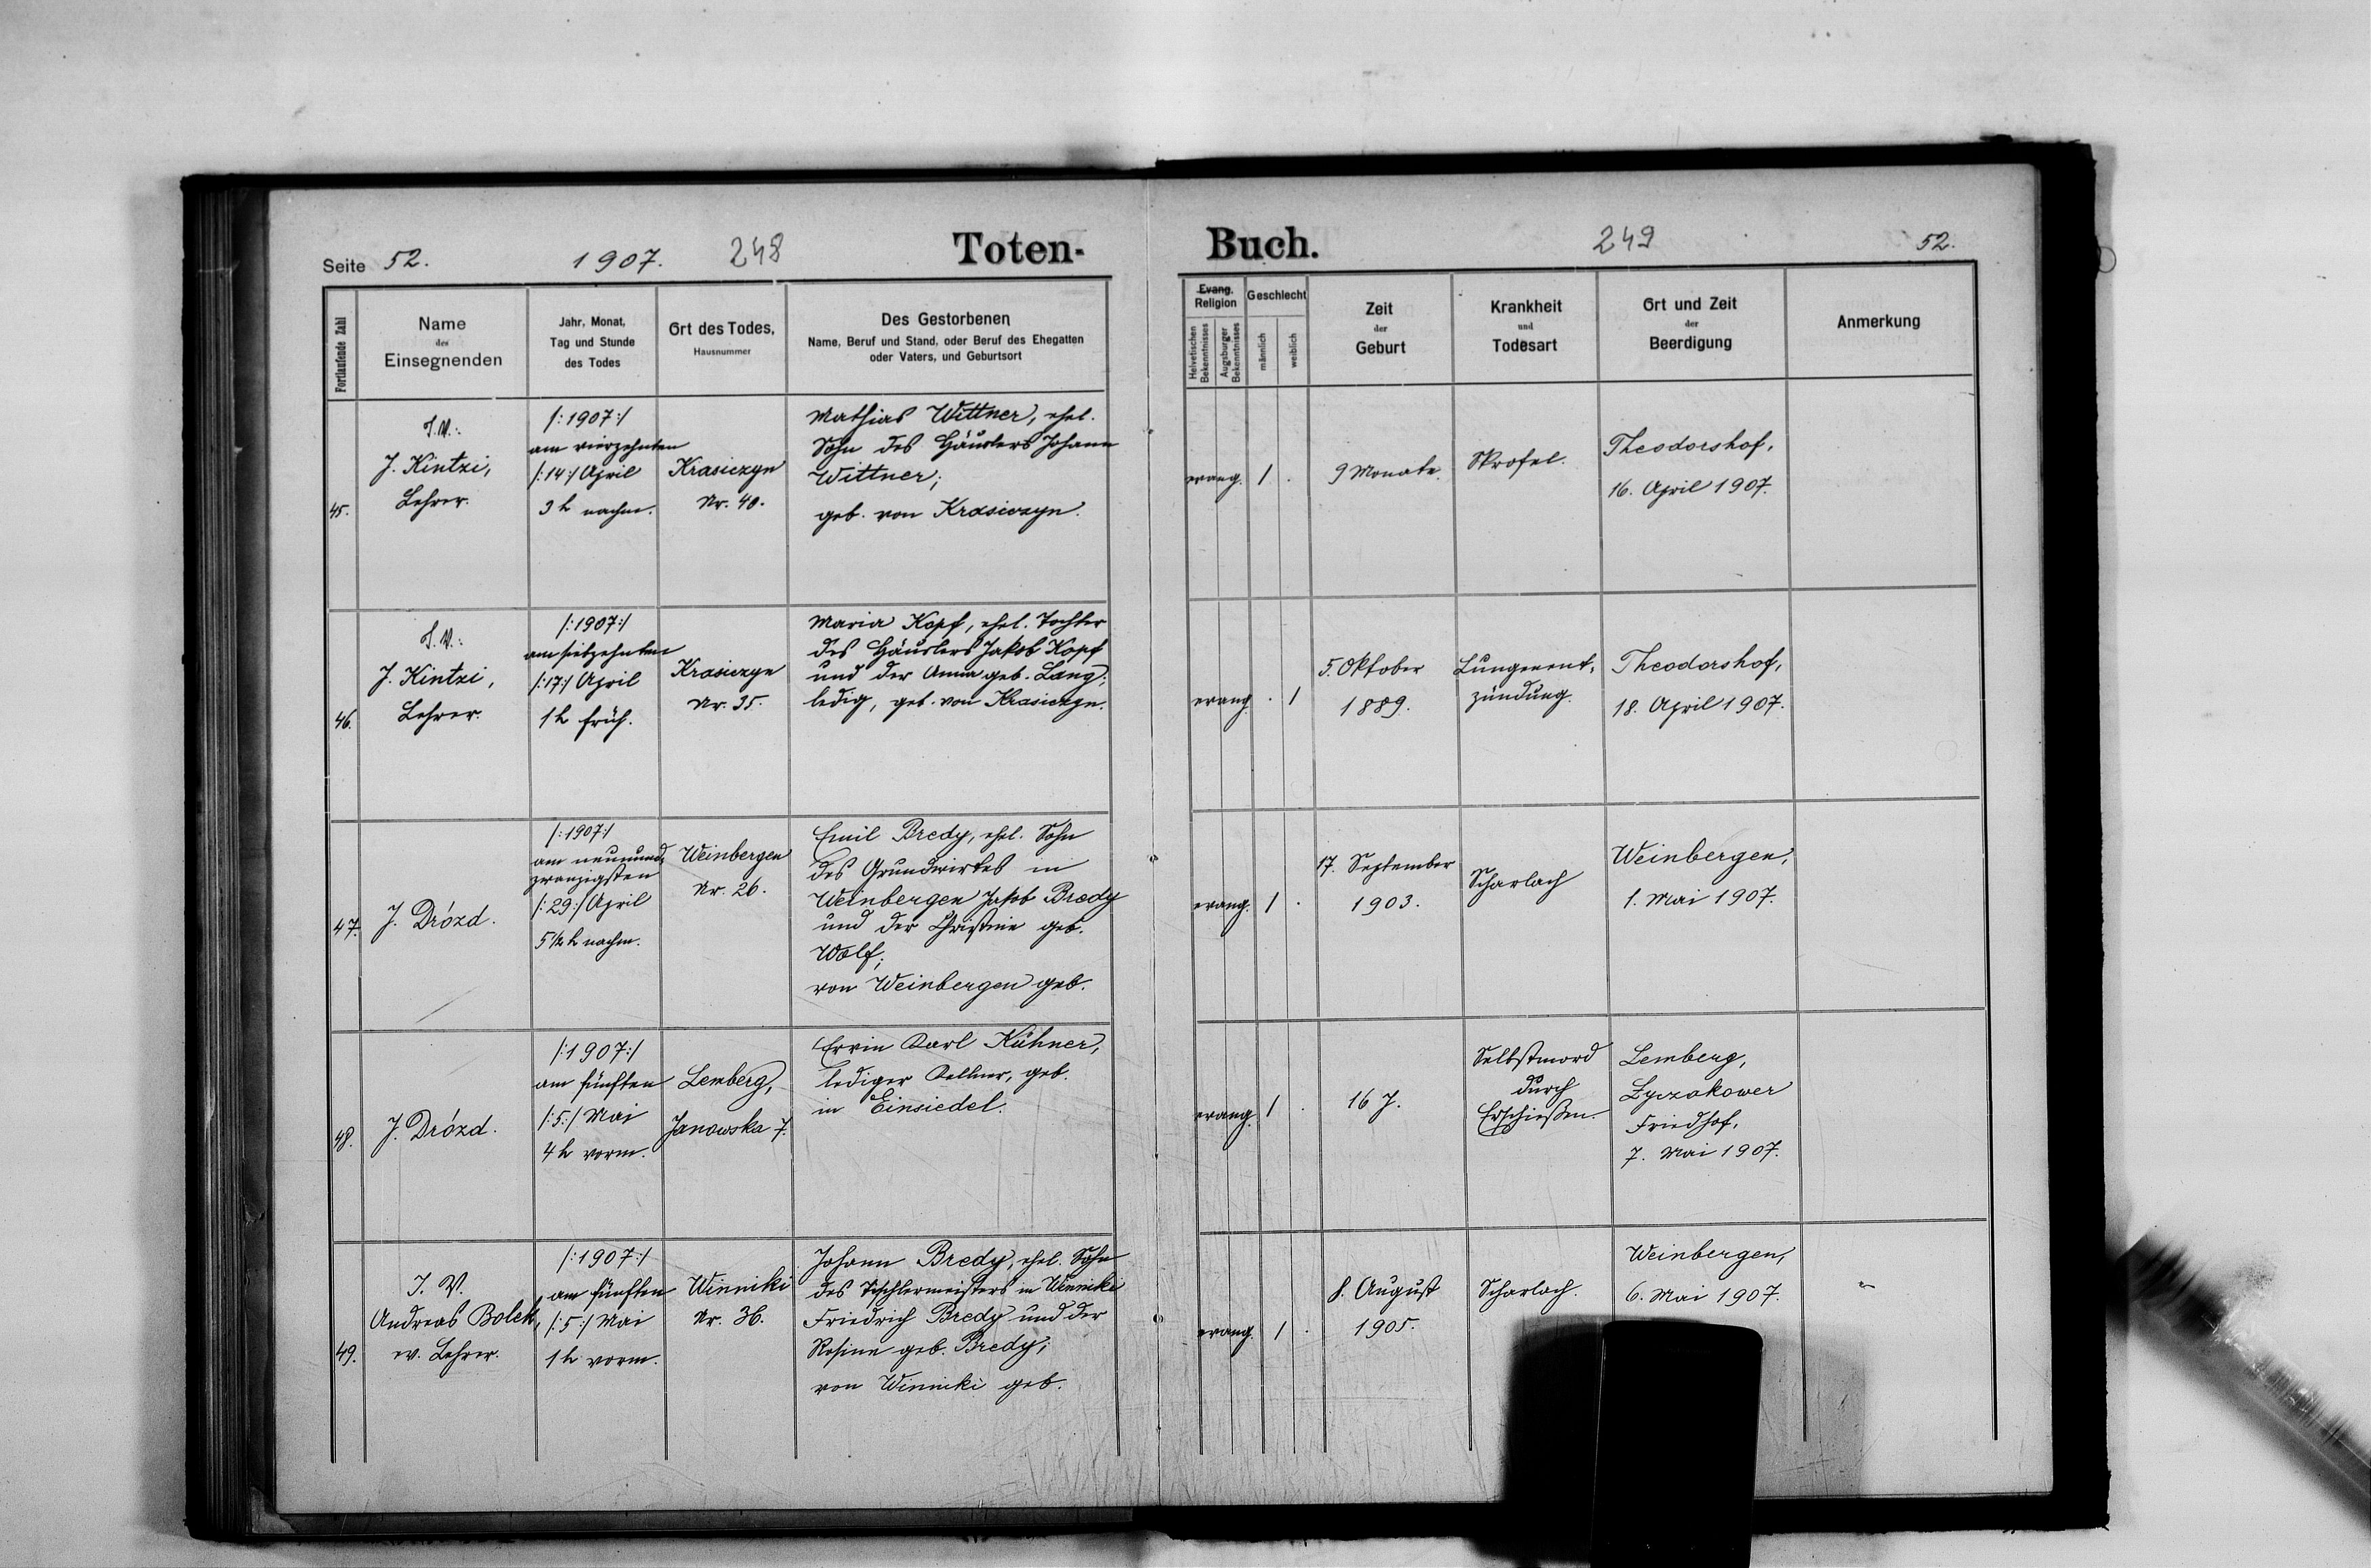 Seite 52.
1907.
248
Toten-
Buch.
249
52.
Fortlaufende Zahl
Name
des
Einsegnenden
Jahr, Monat,
Tag und Stunde
des Todes
Ort des Todes,
Hausnummer
Des Gestorbenen
Name, Beruf und Stand, oder Beruf des Ehegatten
oder Vaters, und Geburtsort
Evang.
Religion
Helvetischen
Bekenntnisses
Augsburger
Bekenntnisses
Geschlecht
männlich
weiblich
Zeit
der
Geburt
Krankheit
und
Todesart
Ort und Zeit
der
Beerdigung
Anmerkung
45.
I. V.:
J. Kintzi,
Lehrer.
/:1907:/
am vierzehnten
/:14:/ April
3 h nachm.
Krasiczyn
Nr. 40.
Mathias Wittner, ehel.
Sohn des Häuslers Johann
Wittner;
geb. von Krasiczyn.
evang.
1
.
9 Monate.
Skrofel.
Theodorshof,
16. April 1907.
46.
I. V.:
J. Kintzi,
Lehrer.
/:1907:/
am siebzehnten
/:17:/ April
1 h früh.
Krasiczyn
Nr. 35.
Maria Kopf, ehel. Tochter
des Häuslers Jakob Kopf
und der Anna geb. Lang;
ledig, geb. von Krasiczyn.
evang.
.
1
5. Oktober
1889.
Lungenent-
zündung.
Theodorshof,
18. April 1907.
47.
J. Drózd.
/:1907:/
am neunund-
zwanzigsten
/:29:/ April
5 1/2 h nachm.
Weinbergen
Nr. 26.
Emil Bredy, ehel. Sohn
des Grundwirtes in
Weinbergen Jakob Bredy
und der Christine geb.
Wolf;
von Weinbergen geb.
evang.
1
.
17. September
1903.
Scharlach
Weinbergen,
1. Mai 1907.
48.
J. Drózd.
/:1907:/
am fünften
/:5:/ Mai
4 h vorm.
Lemberg,
Janowska 7.
Ervin Karl Kühner,
lediger Kellner, geb.
in Einsiedel.
evang.
1
.
16 J.
Selbstmord
durch
Erschießen.
Lemberg,
Łyczakower
Friedhof,
7. Mai 1907.
49.
I. V.
Andreas Bolek,
ev. Lehrer.
/:1907:/
am fünften
/:5:/ Mai
1 h vorm.
Winniki
Nr. 36.
Johann Bredy, ehel. Sohn
des Tischlermeisters in Winniki
Friedrich Bredy und der
Rosina geb. Bredy;
von Winniki geb.
evang.
1
.
8. August
1905.
Scharlach.
Weinbergen,
6. Mai 1907.